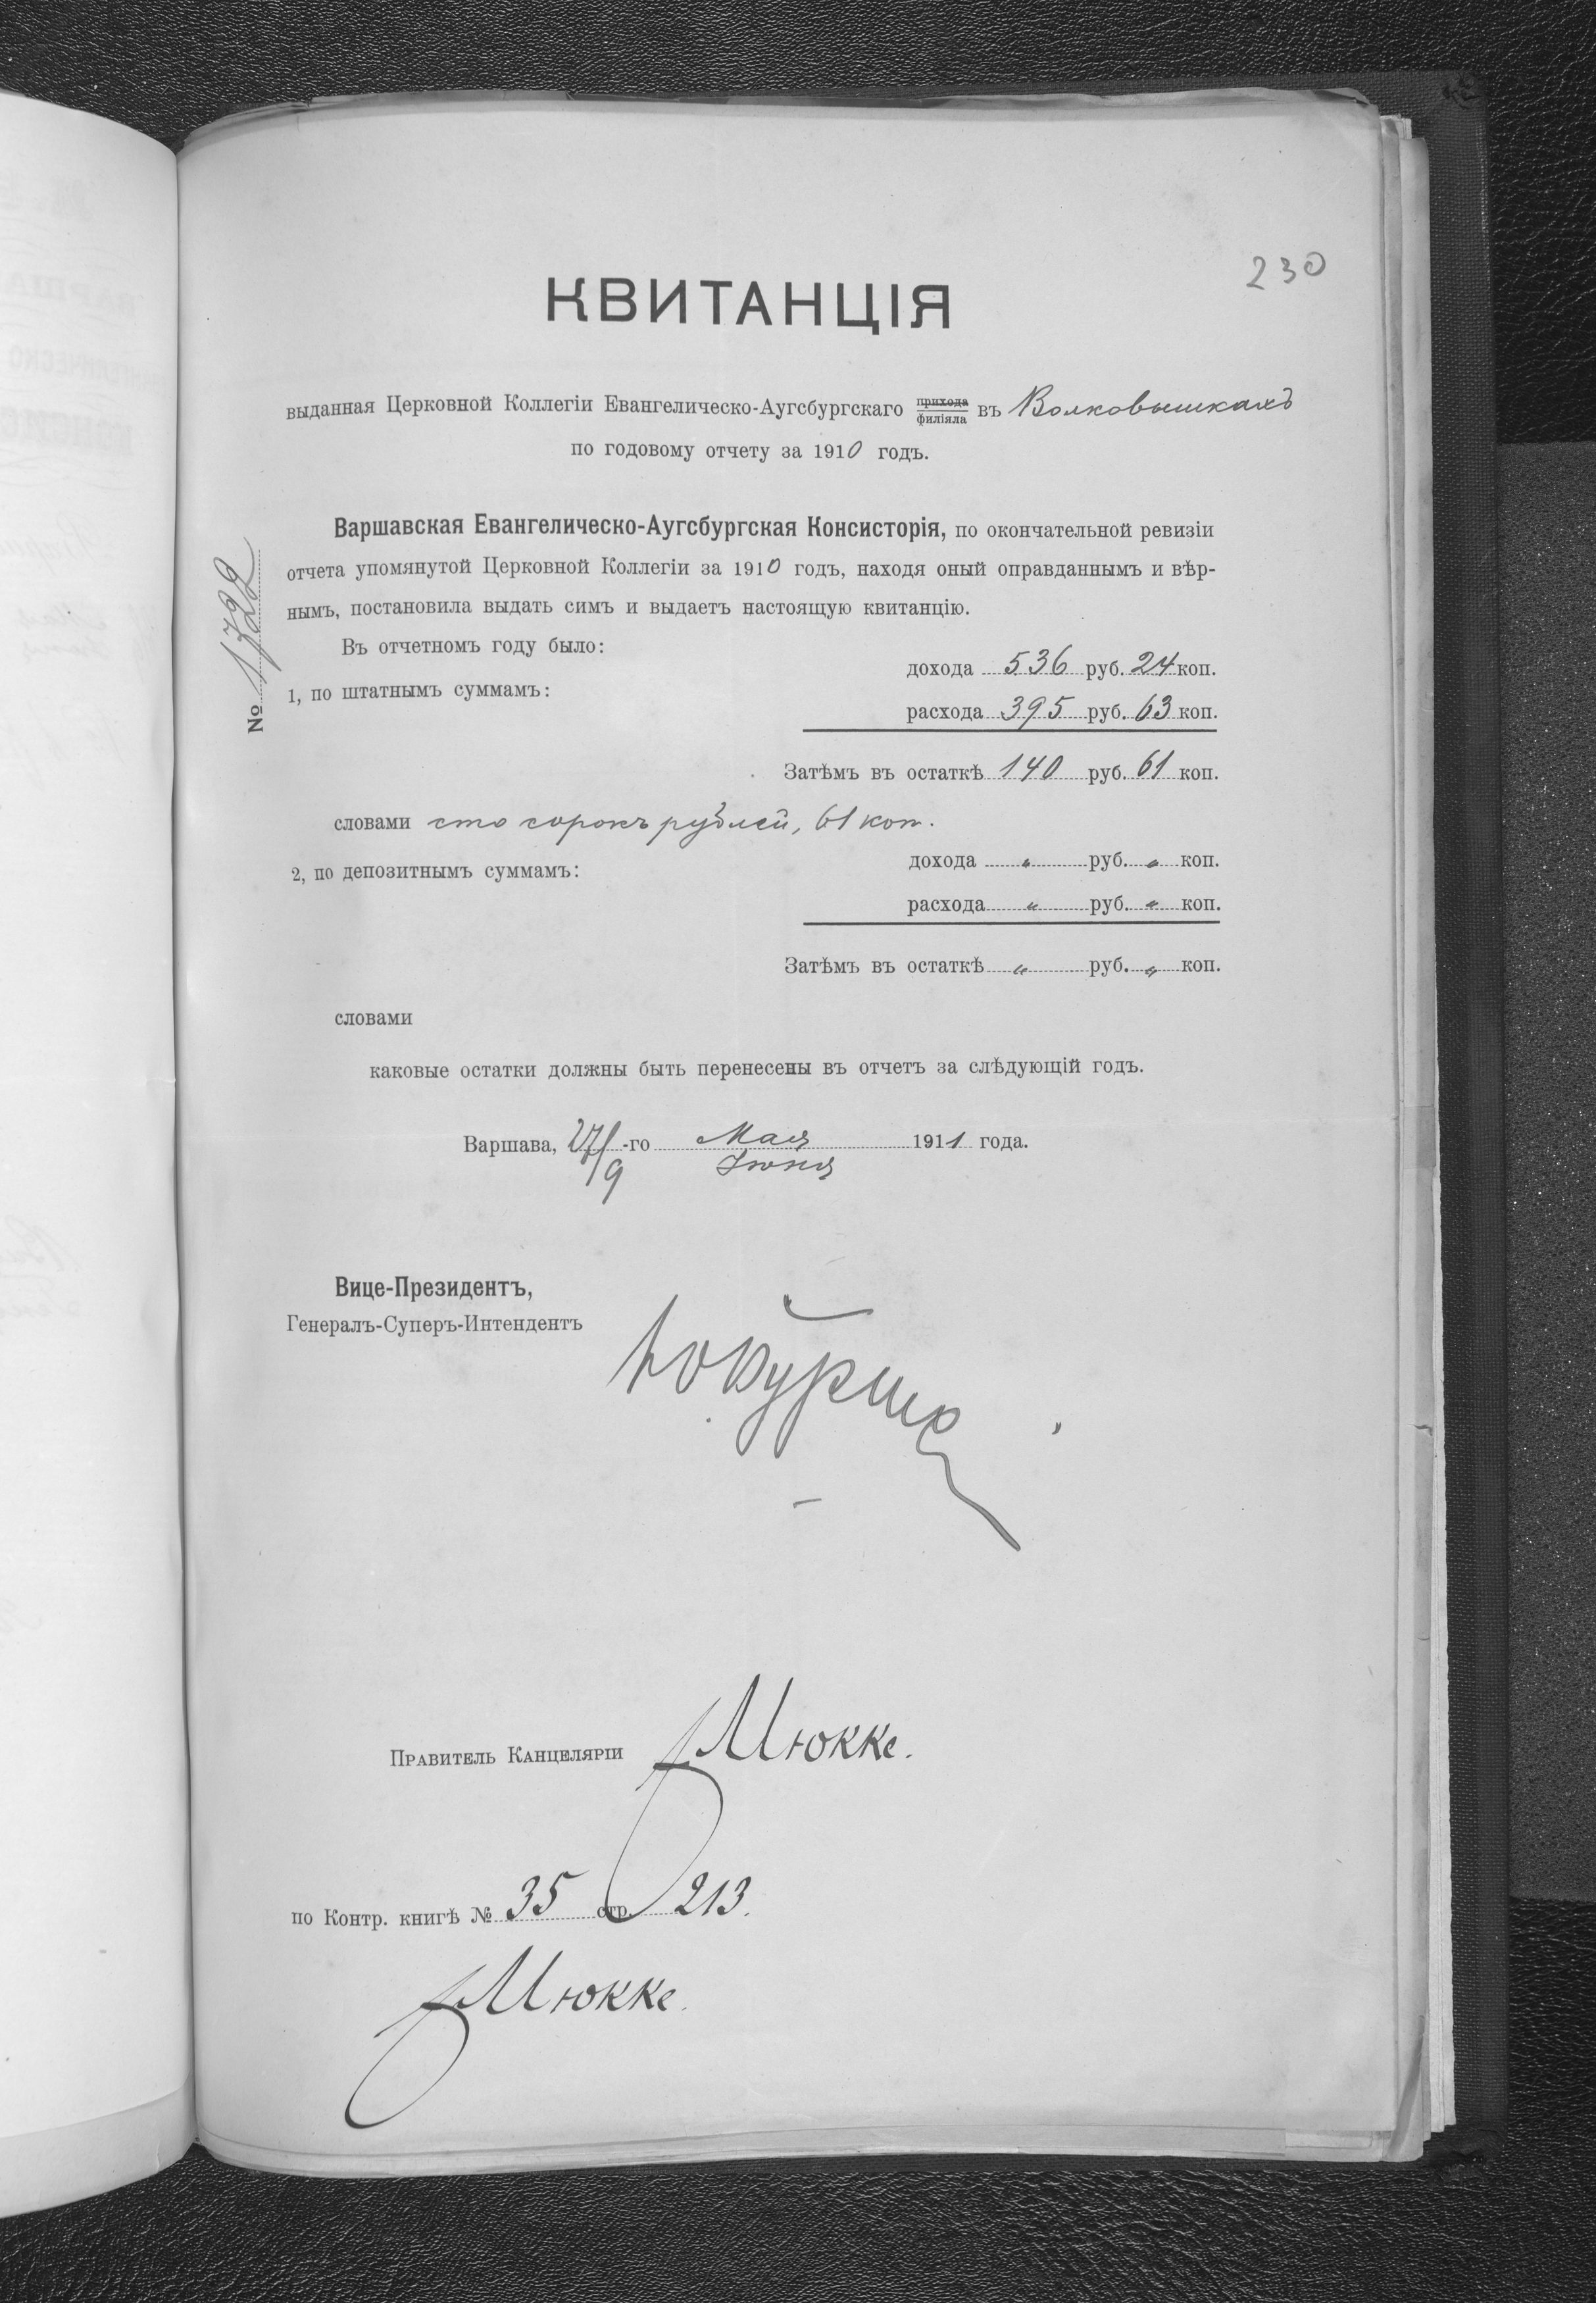 230
КВИТАНЦІЯ
выданная Церковной Коллегіи Евангелическо-Аугсбургскаго прихода филіяла въ Волковышкахъ
по годовому отчету за 1910 годъ.
№ 1722
Варшавская Евангелическо-Аугсбургская Консисторія, по окончательной ревизіи
отчета упомянутой Церковной Коллегіи за 1910 годъ, находя оный оправданнымъ и вѣр-
нымъ, постановила выдать симъ и выдаетъ настоящую квитанцію.
Въ отчетномъ году было:
1, по штатнымъ суммамъ:
дохода 536 руб. 24 коп.
расхода 395 руб. 63 коп.
Затѣмъ въ остаткѣ 140 руб. 61 коп.
словами сто сорокъ рублей, 61 коп.
2, по депозитнымъ суммамъ:
дохода " руб. " коп.
расхода " руб. " коп.
Затѣмъ въ остаткѣ " руб. " коп.
словами
каковые остатки должны быть перенесены въ отчетъ за слѣдующій годъ.
Варшава, 27/9-го Мая Іюня 1911 года.
Вице-Президентъ,
Генералъ-Суперъ-Интендентъ
Правитель Канцеляріи Мюкке.
по Контр. книгѣ № 35 стр. 213.
Мюкке.